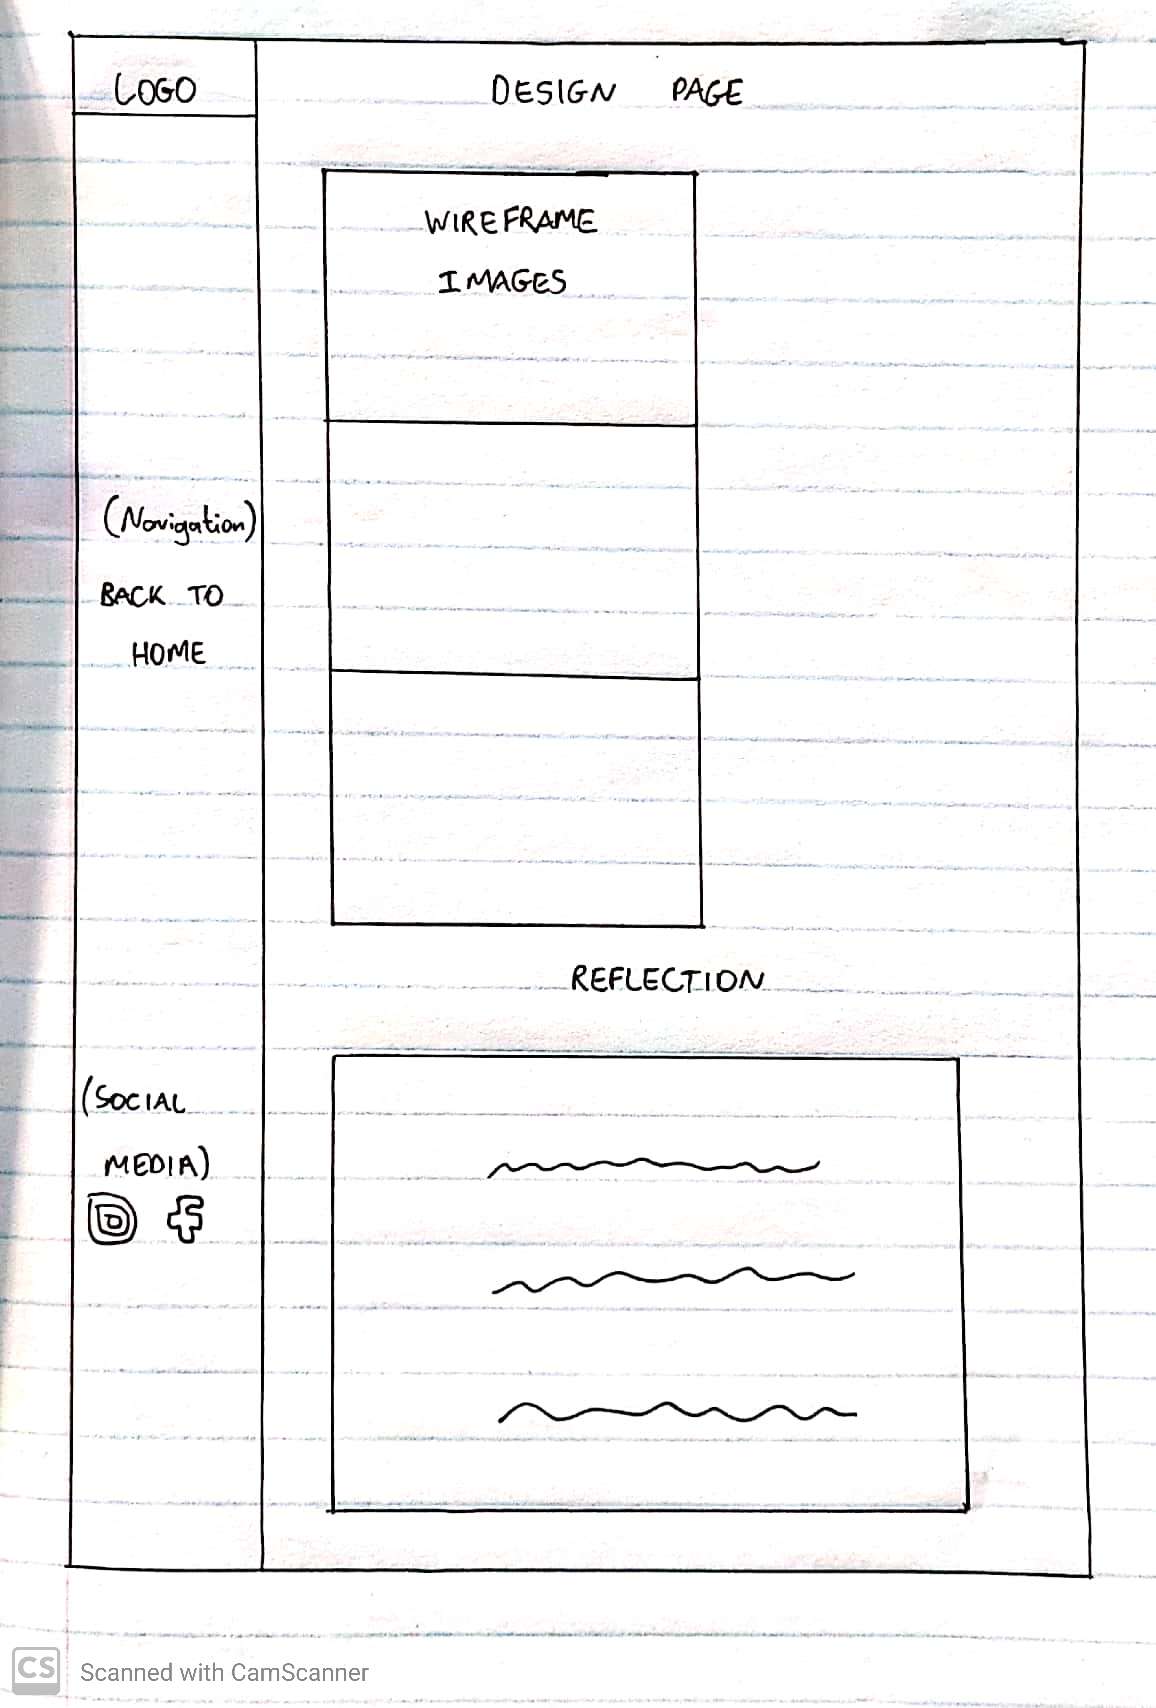 LOGO
DESIGN PAGE
WIREFRAME
IMAGES
(Navigation)
BACK TO
HOME
REFLECTION
(SOCIAL
MEDIA)
CS Scanned with CamScanner